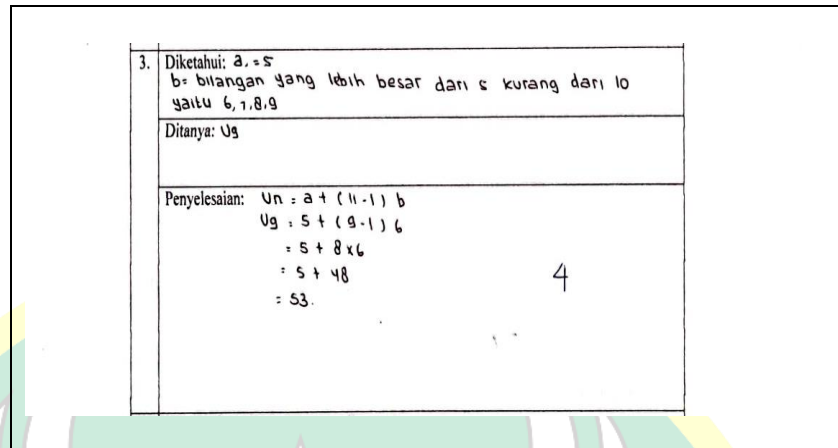 3. Diketahui: a. = 5
b = bilangan yang lebih besar dari 5 kurang dari 10
yaitu 6, 7, 8, 9
Ditanya: U9
Penyelesaian: Un = a + (n-1) b
U9 = 5 + (9-1) 6
= 5 + 8 x 6
= 5 + 48
= 53.
4